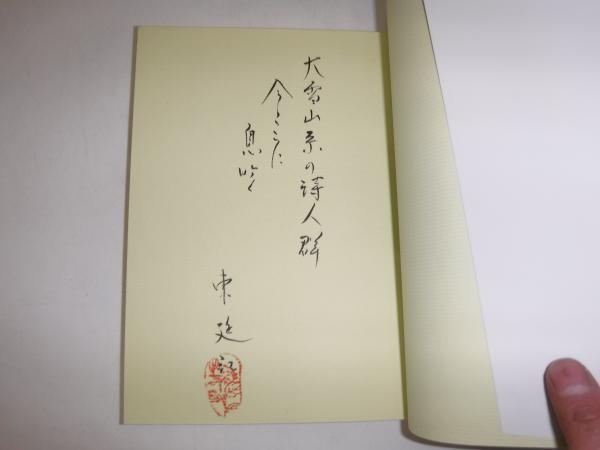 大雪山系の詩人群
今もここに
息吹く
東延記